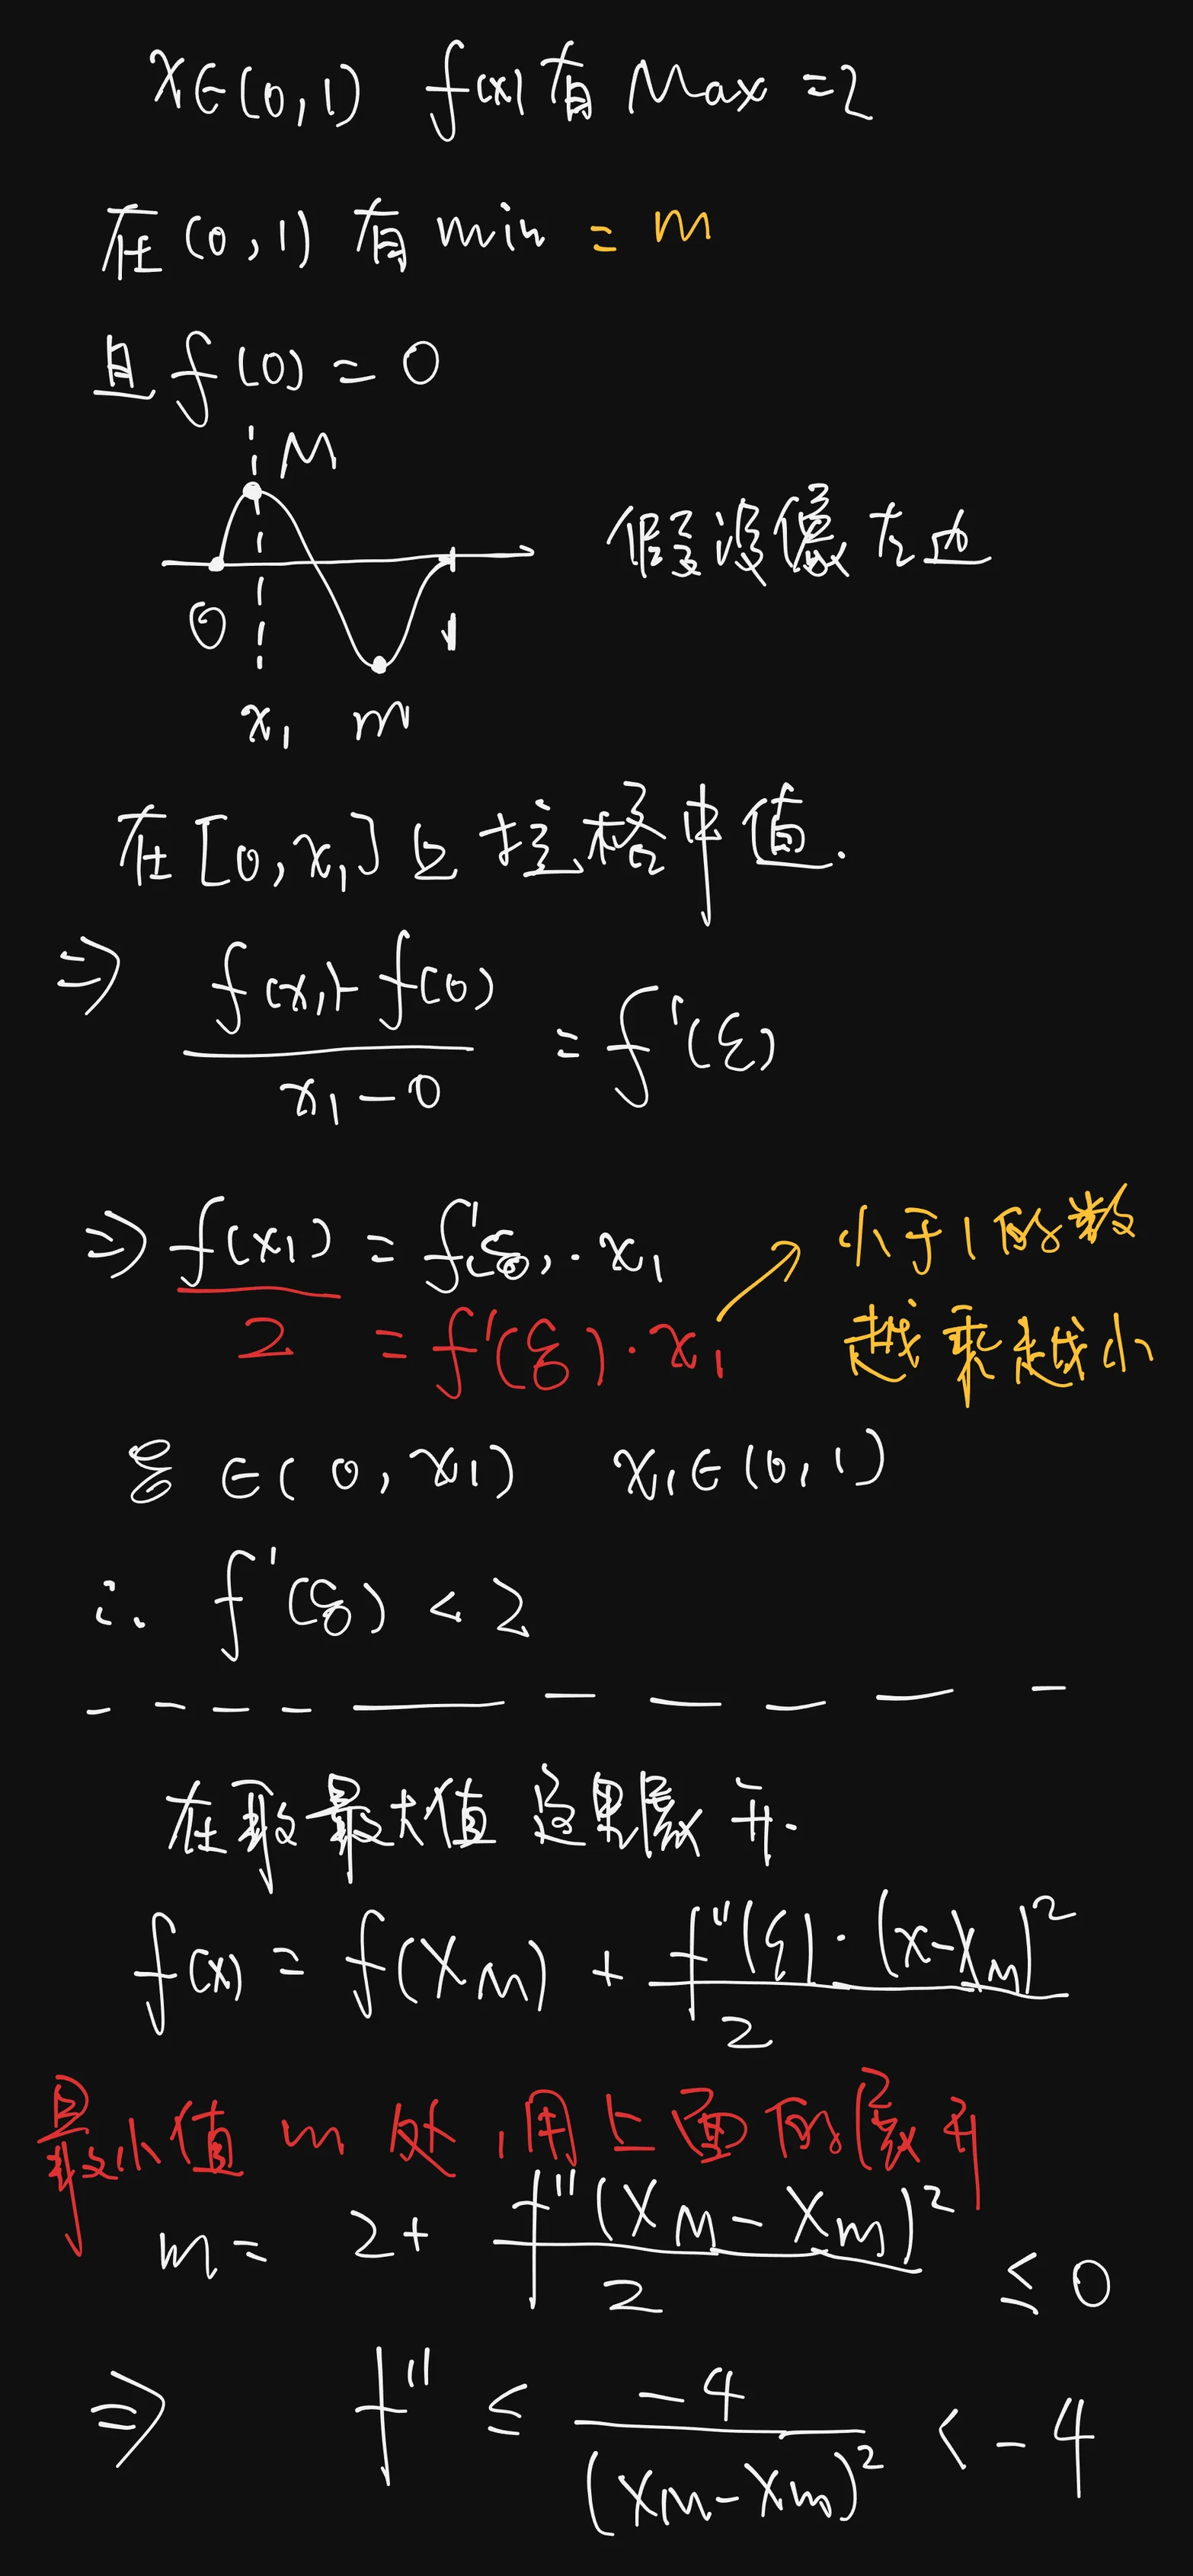 x∈(0,1) f(x)有Max=2
在(0,1)有min=m
且f(0)=0
M
假设像左边
0 1
x₁ m
在[0,x₁]上拉格中值.
⇒ (f(x₁)-f(0))/(x₁-0) = f'(ξ)
⇒ f(x₁) = f'(ξ)·x₁
小于1的数
2 = f'(ξ)·x₁
越来越小
ξ∈(0,x₁) x₁∈(0,1)
∴ f'(ξ)<2
在取最大值这里展开.
f(x) = f(x_M) + f''(ξ)·(x-x_M)²/2
最小值m处,用上面的展开
m = 2 + f''(x_M-x_m)²/2 ≤ 0
⇒ f'' ≤ -4/(x_M-x_m)² < -4